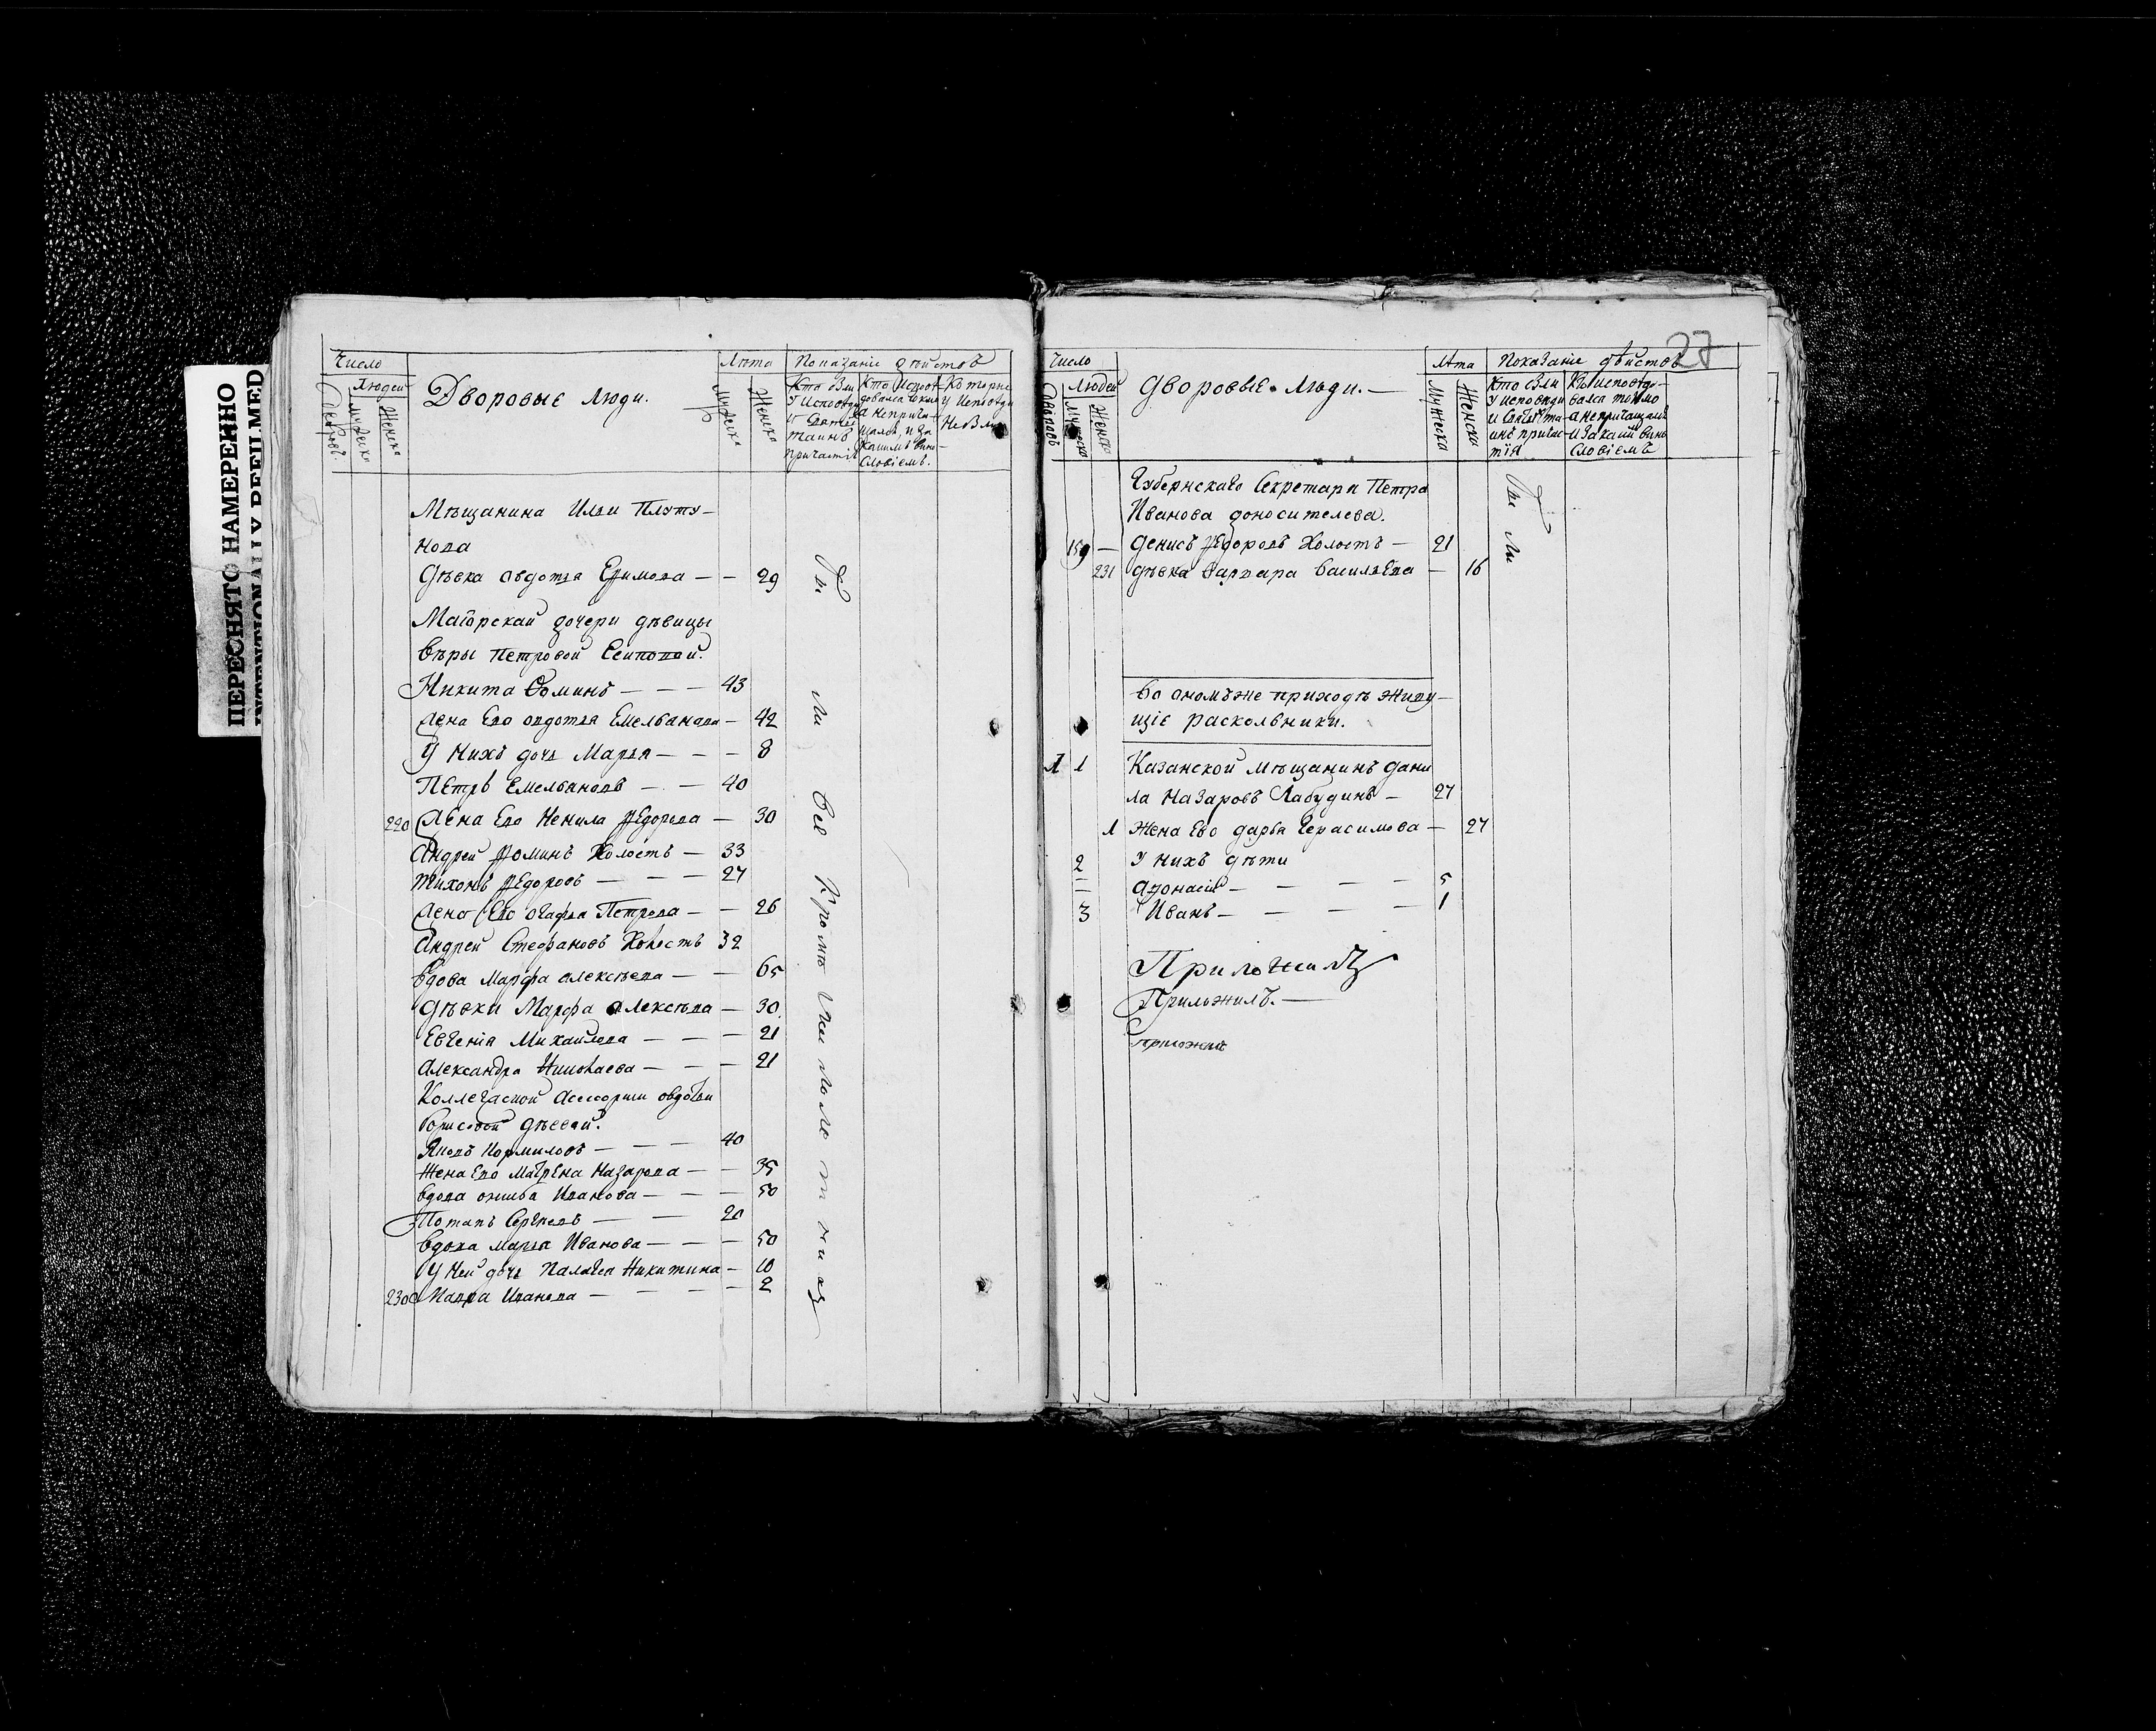 ПЕРЕСНЯТО НАМЕРЕННО
INTENTIONALLY REFILMED
Число
Людей
Дворовъ
Мужеска
Женска
Дворовые люди.
Лѣта
Мужеска
Женска
Показаніе дѣйствъ
Кто были
у исповѣди
и святыхъ
таинъ
причастія
Кто исповѣ-
довался токмо
а неприча-
щался и за
какимъ вино-
словіемъ.
Которые
у исповѣди
не были
Мѣщанина Ильи Плуту-
нова
Дѣвка Овдотья Ефимова — — 29
Маіорской дочери дѣвицы
Вѣры Петровой Есиповой.
Никита Фоминъ — — — 43
Жена Ево Овдотья Емельянова — 42
У нихъ дочь Марья — — — 8
Петръ Емельяновъ — — 40
220 Жена Ево Ненила Ѳедорова — 30
Андрей Фоминъ Холостъ — 33
Тихонъ Ѳедоровъ — — — 27
Жена Ево Огафья Петрова — — 26
Андрей Стефановъ Холостъ 32
Вдова Марфа Алексѣева — — 65
Дѣвки Марфа Алексѣева — 30
Евгенія Михайлова — — — 21
Александра Николаева — — — 21
Коллежской Асессорши Овдотьи
Борисовой дѣевой.
Яковъ Кормиловъ — — — 40
Жена Ево Матрена Назарова — — 35
Вдова Ониса Иванова — — — 50
Потапъ Сергѣевъ — — 20
Вдова Марья Иванова — — — 50
У ней дочь Палагея Никитина — 10
230 Иванова — — — — 2
Бы ли Все Кромѣ малолѣтнихъ
27
Число
Людей
Дворовъ
Мужеска
Женска
Дворовые Люди. —
Лѣта
Мужеска
Женска
Показаніе дѣйствъ
Кто были
у исповѣди
и святыхъ та-
инъ причас-
тія
Кто исповѣдо-
вался токмо
а непричащался
и за какимъ вино
словіемъ
Губернскаго Секретаря Петра
Иванова Доносителева.
159 — Денисъ Ѳедоровъ Холостъ — 21
231 Дѣвка Варвара Васильева — 16
Бы ли
Во ономъ же приходѣ живу-
щіе раскольники.
1 1 Казанской мѣщанинъ Дани
ла Назаровъ Лабудинъ — 27
1 Жена Ево Дарья Герасимова — 27
2 У нихъ дѣти
Афонасій — — — — 5
3 Иванъ — — — — 1
Приложилъ
Приложилъ. —
Приложилъ